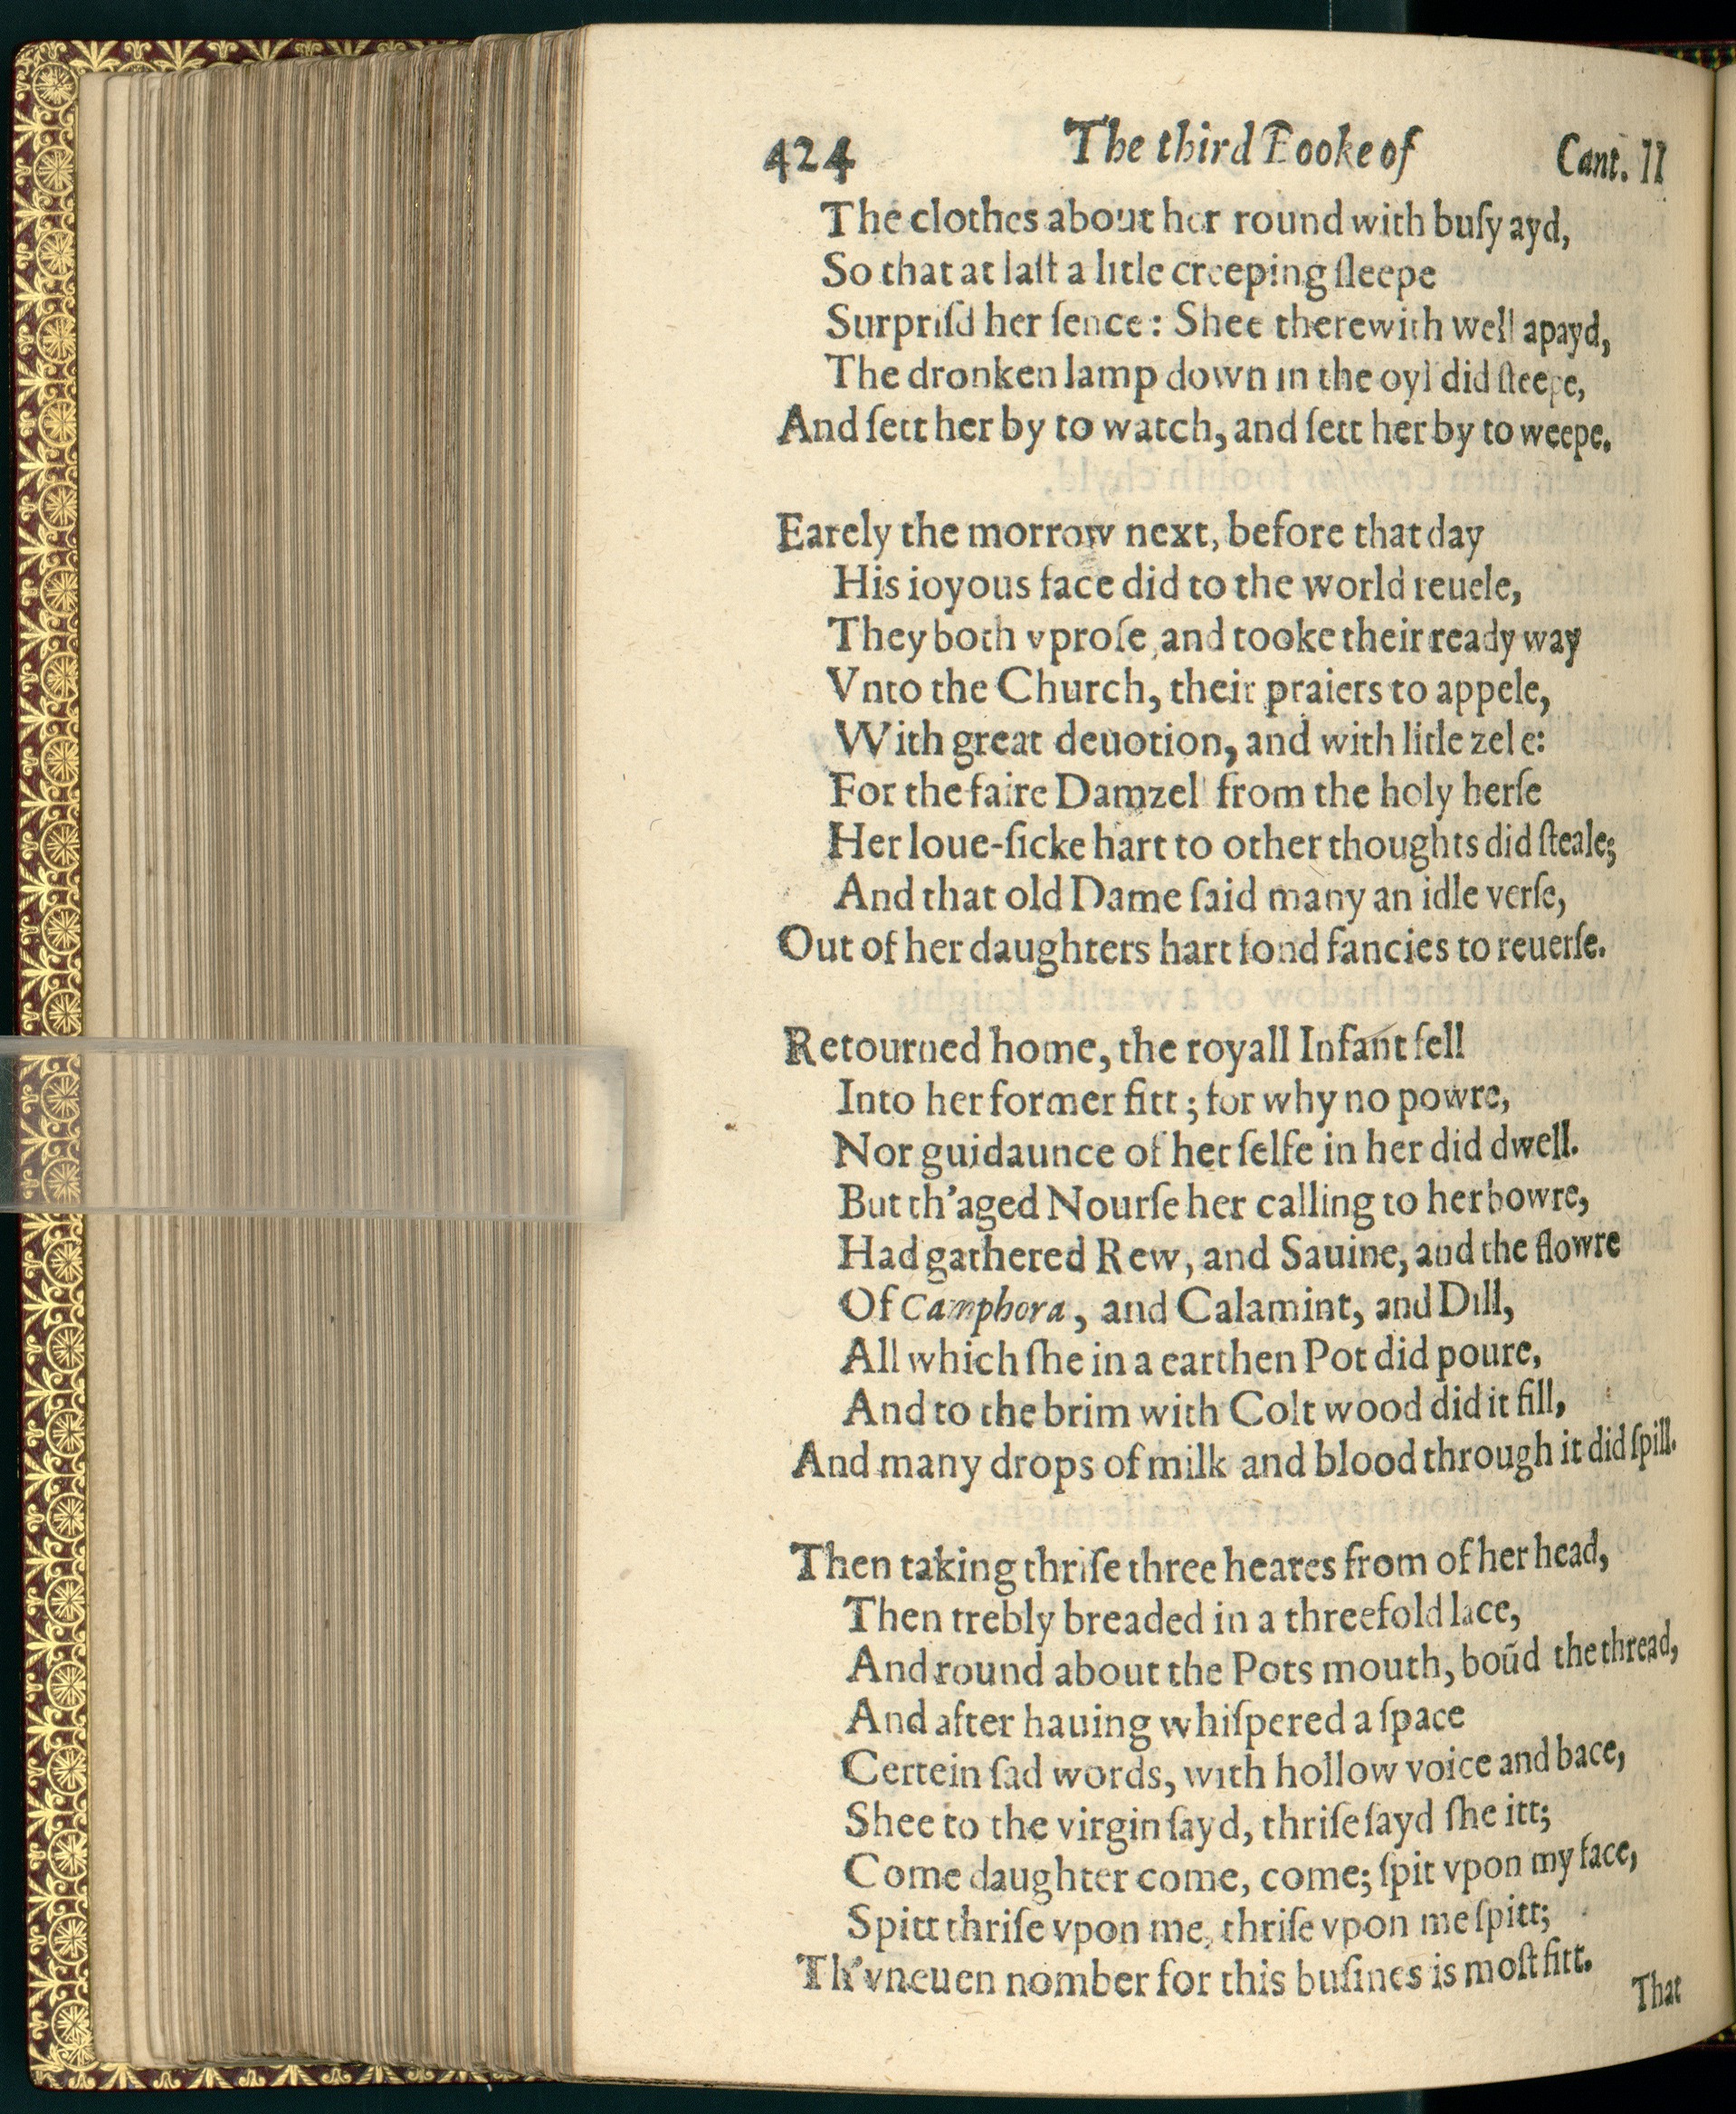 424 The third Booke of Cant. II
The clothes about her round with buſy ayd,
So that at laſt a litle creeping ſleepe
Surpriſd her ſence: Shee therewith well apayd,
The dronken lamp down in the oyl did ſteepe,
And ſett her by to watch, and ſett her by to weepe.
Earely the morrow next, before that day
His ioyous face did to the world reuele,
They both vproſe, and tooke their ready way
Vnto the Church, their praiers to appele,
With great deuotion, and with litle zele:
For the faire Damzel from the holy herſe
Her loue-ſicke hart to other thoughts did ſteale;
And that old Dame ſaid many an idle verſe,
Out of her daughters hart fond fancies to reuerſe.
Retourned home, the royall Infant fell
Into her former fitt; for why no powre,
Nor guidaunce of her ſelfe in her did dwell.
But th'aged Nourſe her calling to her bowre,
Had gathered Rew, and Sauine, and the flowre
Of Camphora, and Calamint, and Dill,
All which ſhe in a earthen Pot did poure,
And to the brim with Colt wood did it fill,
And many drops of milk and blood through it did ſpill.
Then taking thriſe three heares from of her head,
Then trebly breaded in a threefold lace,
And round about the Pots mouth, boūd the thread,
And after hauing whiſpered a ſpace
Certein ſad words, with hollow voice and bace,
Shee to the virgin ſayd, thriſe ſayd ſhe itt;
Come daughter come, come; ſpit vpon my face,
Spitt thriſe vpon me, thriſe vpon me ſpitt;
Th'vneuen nomber for this buſines is moſt fitt.
That